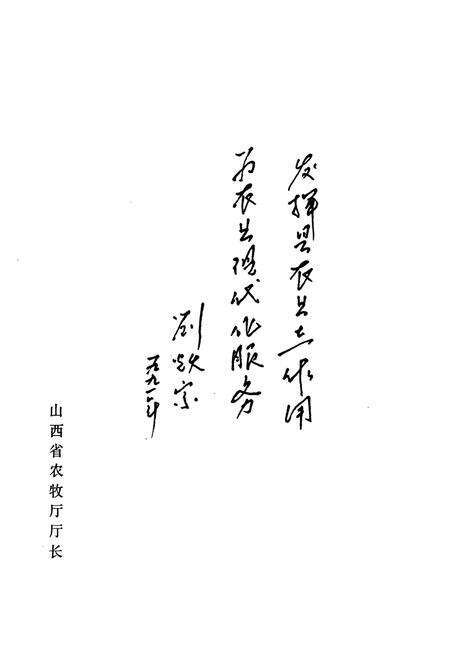 发挥县农业志作用
为农业现代化服务
刘宗
年
山西省农牧厅厅长